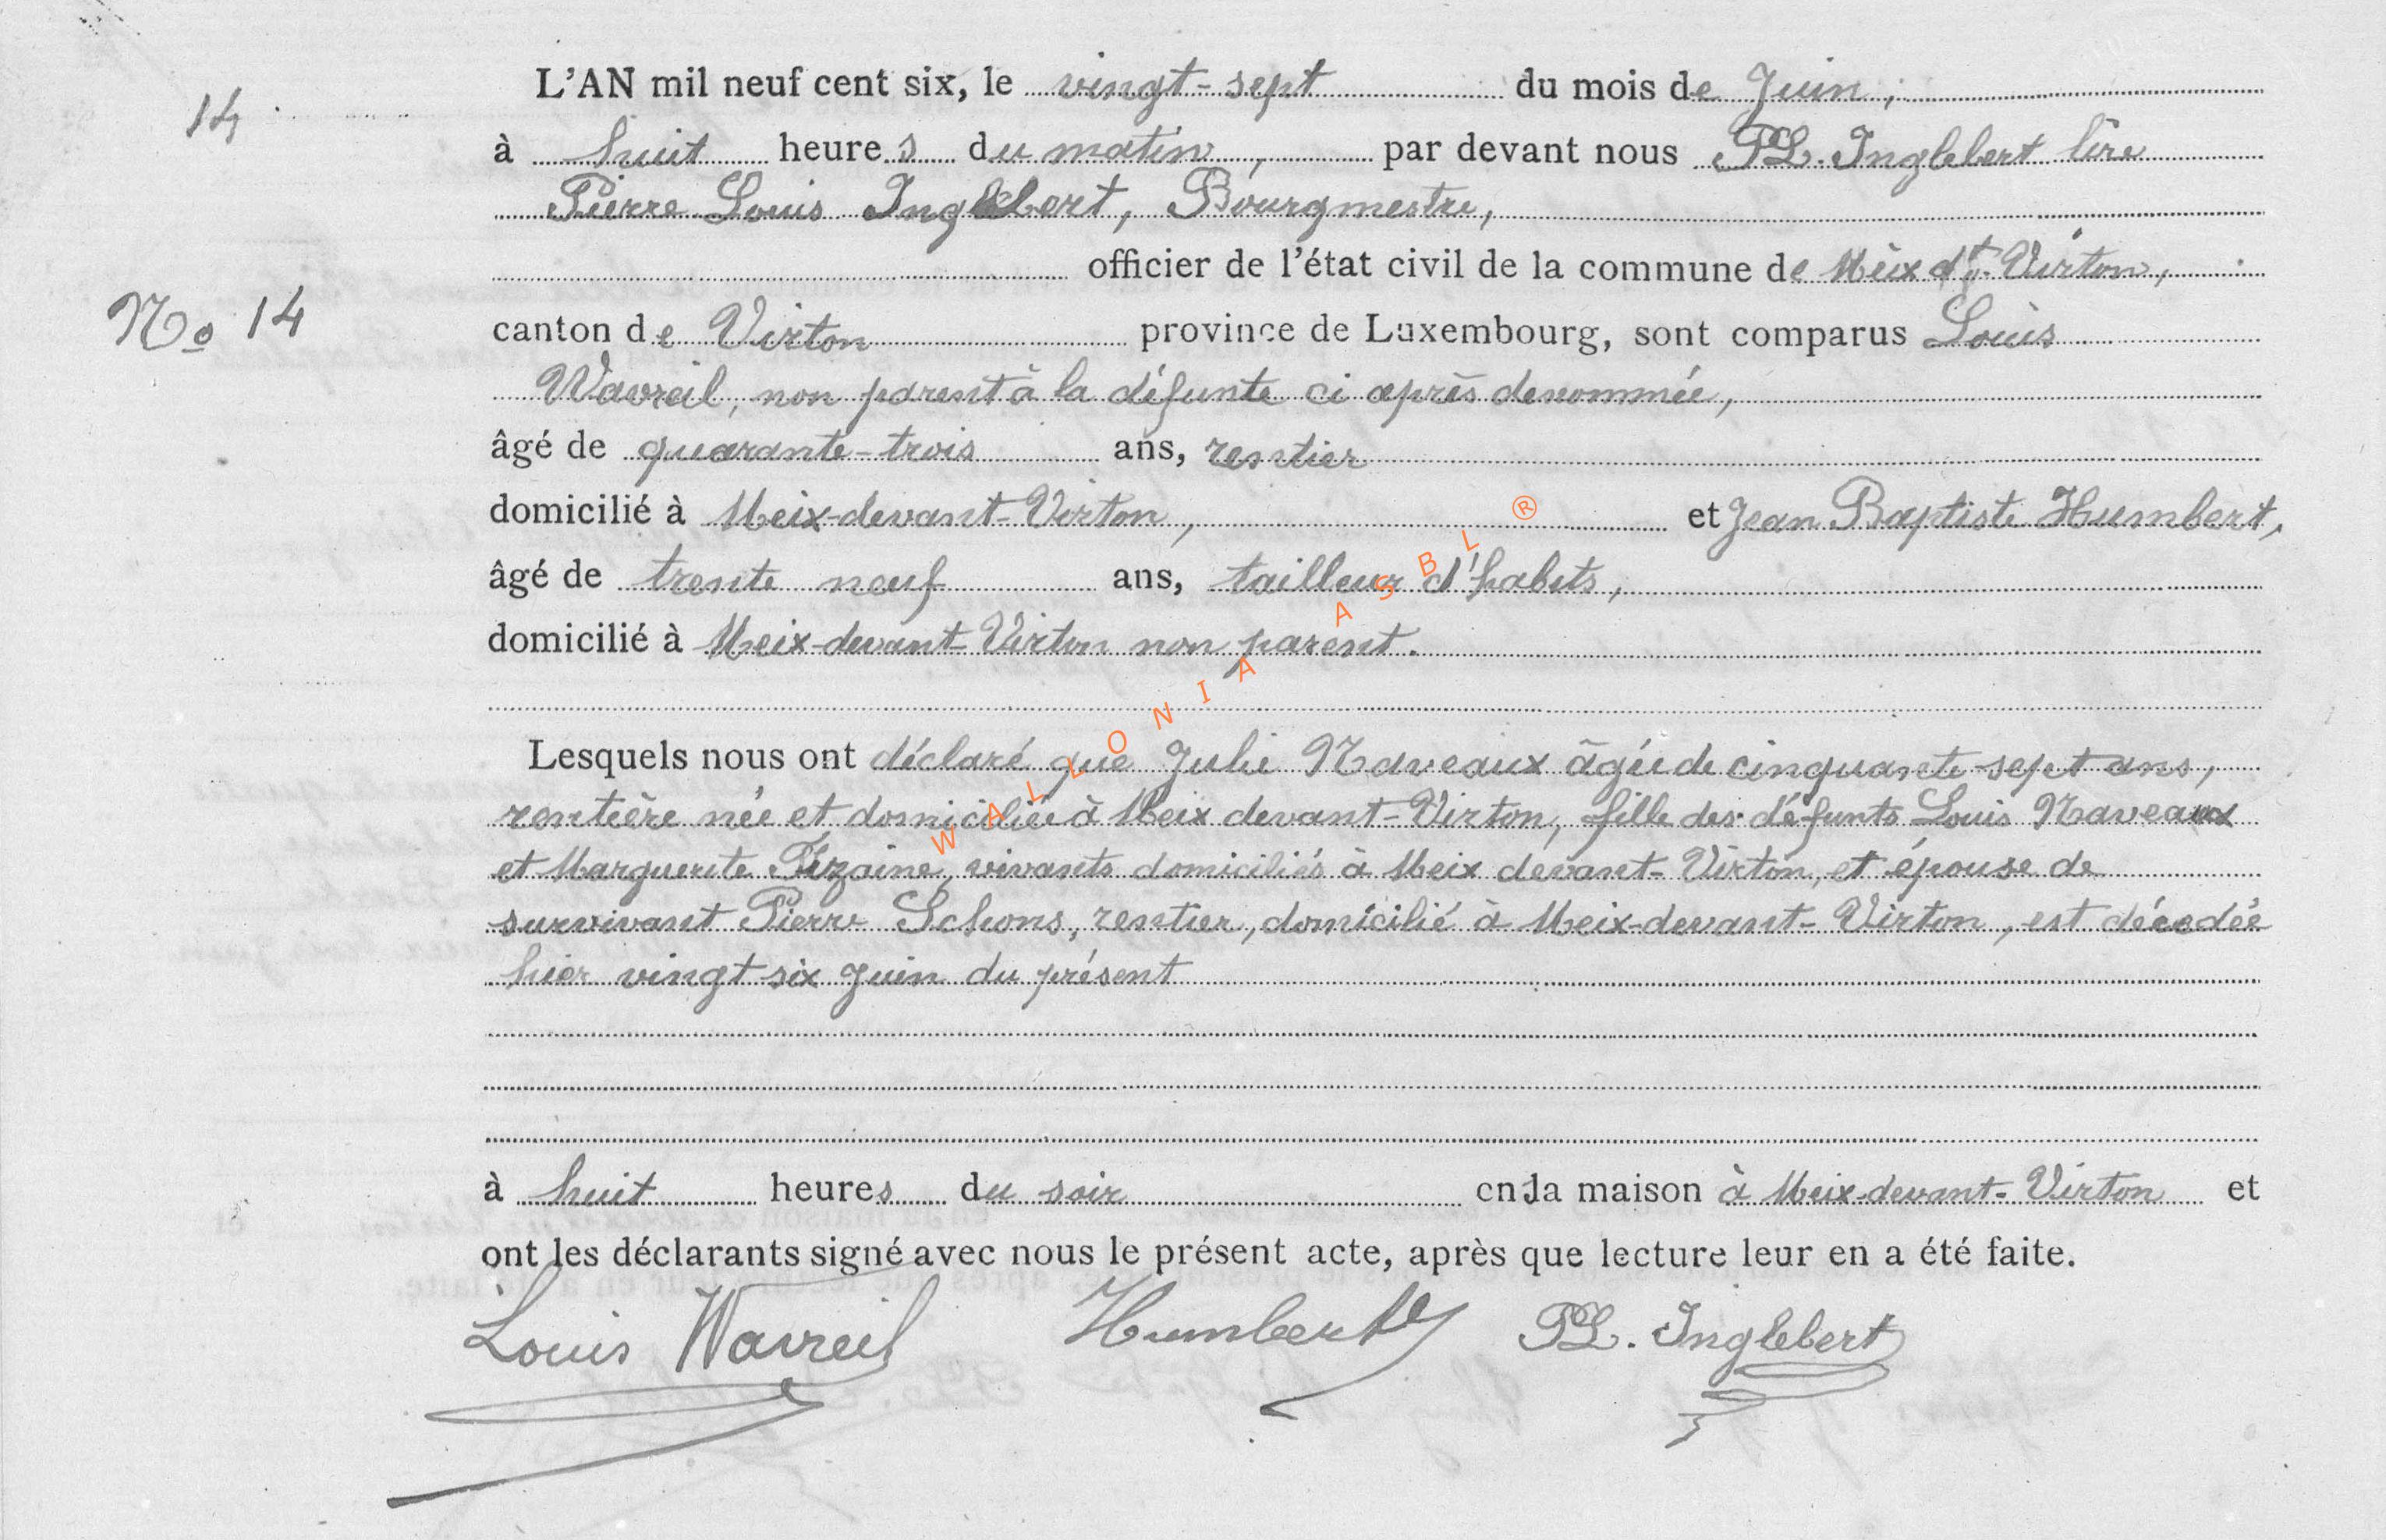 14
L'AN mil neuf cent six, le vingt-sept du mois de Juin,
à huit heures du matin, par devant nous PL. Inglebert lire
Pierre Louis Inglebert, Bourgmestre,
officier de l'état civil de la commune de Meix dt-Virton,
No 14
canton de Virton province de Luxembourg, sont comparus Louis
Wavreil, non parent à la défunte ci après denommée,
âgé de quarante-trois ans, rentier
domicilié à Meix-devant-Virton, et Jean Baptiste Humbert,
âgé de trente neuf ans, tailleur d'habits,
domicilié à Meix-devant-Virton non parent.
Lesquels nous ont déclaré que Julie Naveaux âgée de cinquante-sept ans,
rentière née et domiciliée à Meix devant-Virton, fille des défunts Louis Naveaux
et Marguerite vivants domiciliés à Meix devant-Virton, et épouse de
survivant Pierre Schons, rentier, domicilié à Meix-devant-Virton, est décedée
hier vingt six Juin du présent
à huit heures du soir en la maison à Meix-devant-Virton et
ont les déclarants signé avec nous le présent acte, après que lecture leur en a été faite.
Louis Wavreil Humbert PL. Inglebert
WALLONIA ASBL ®